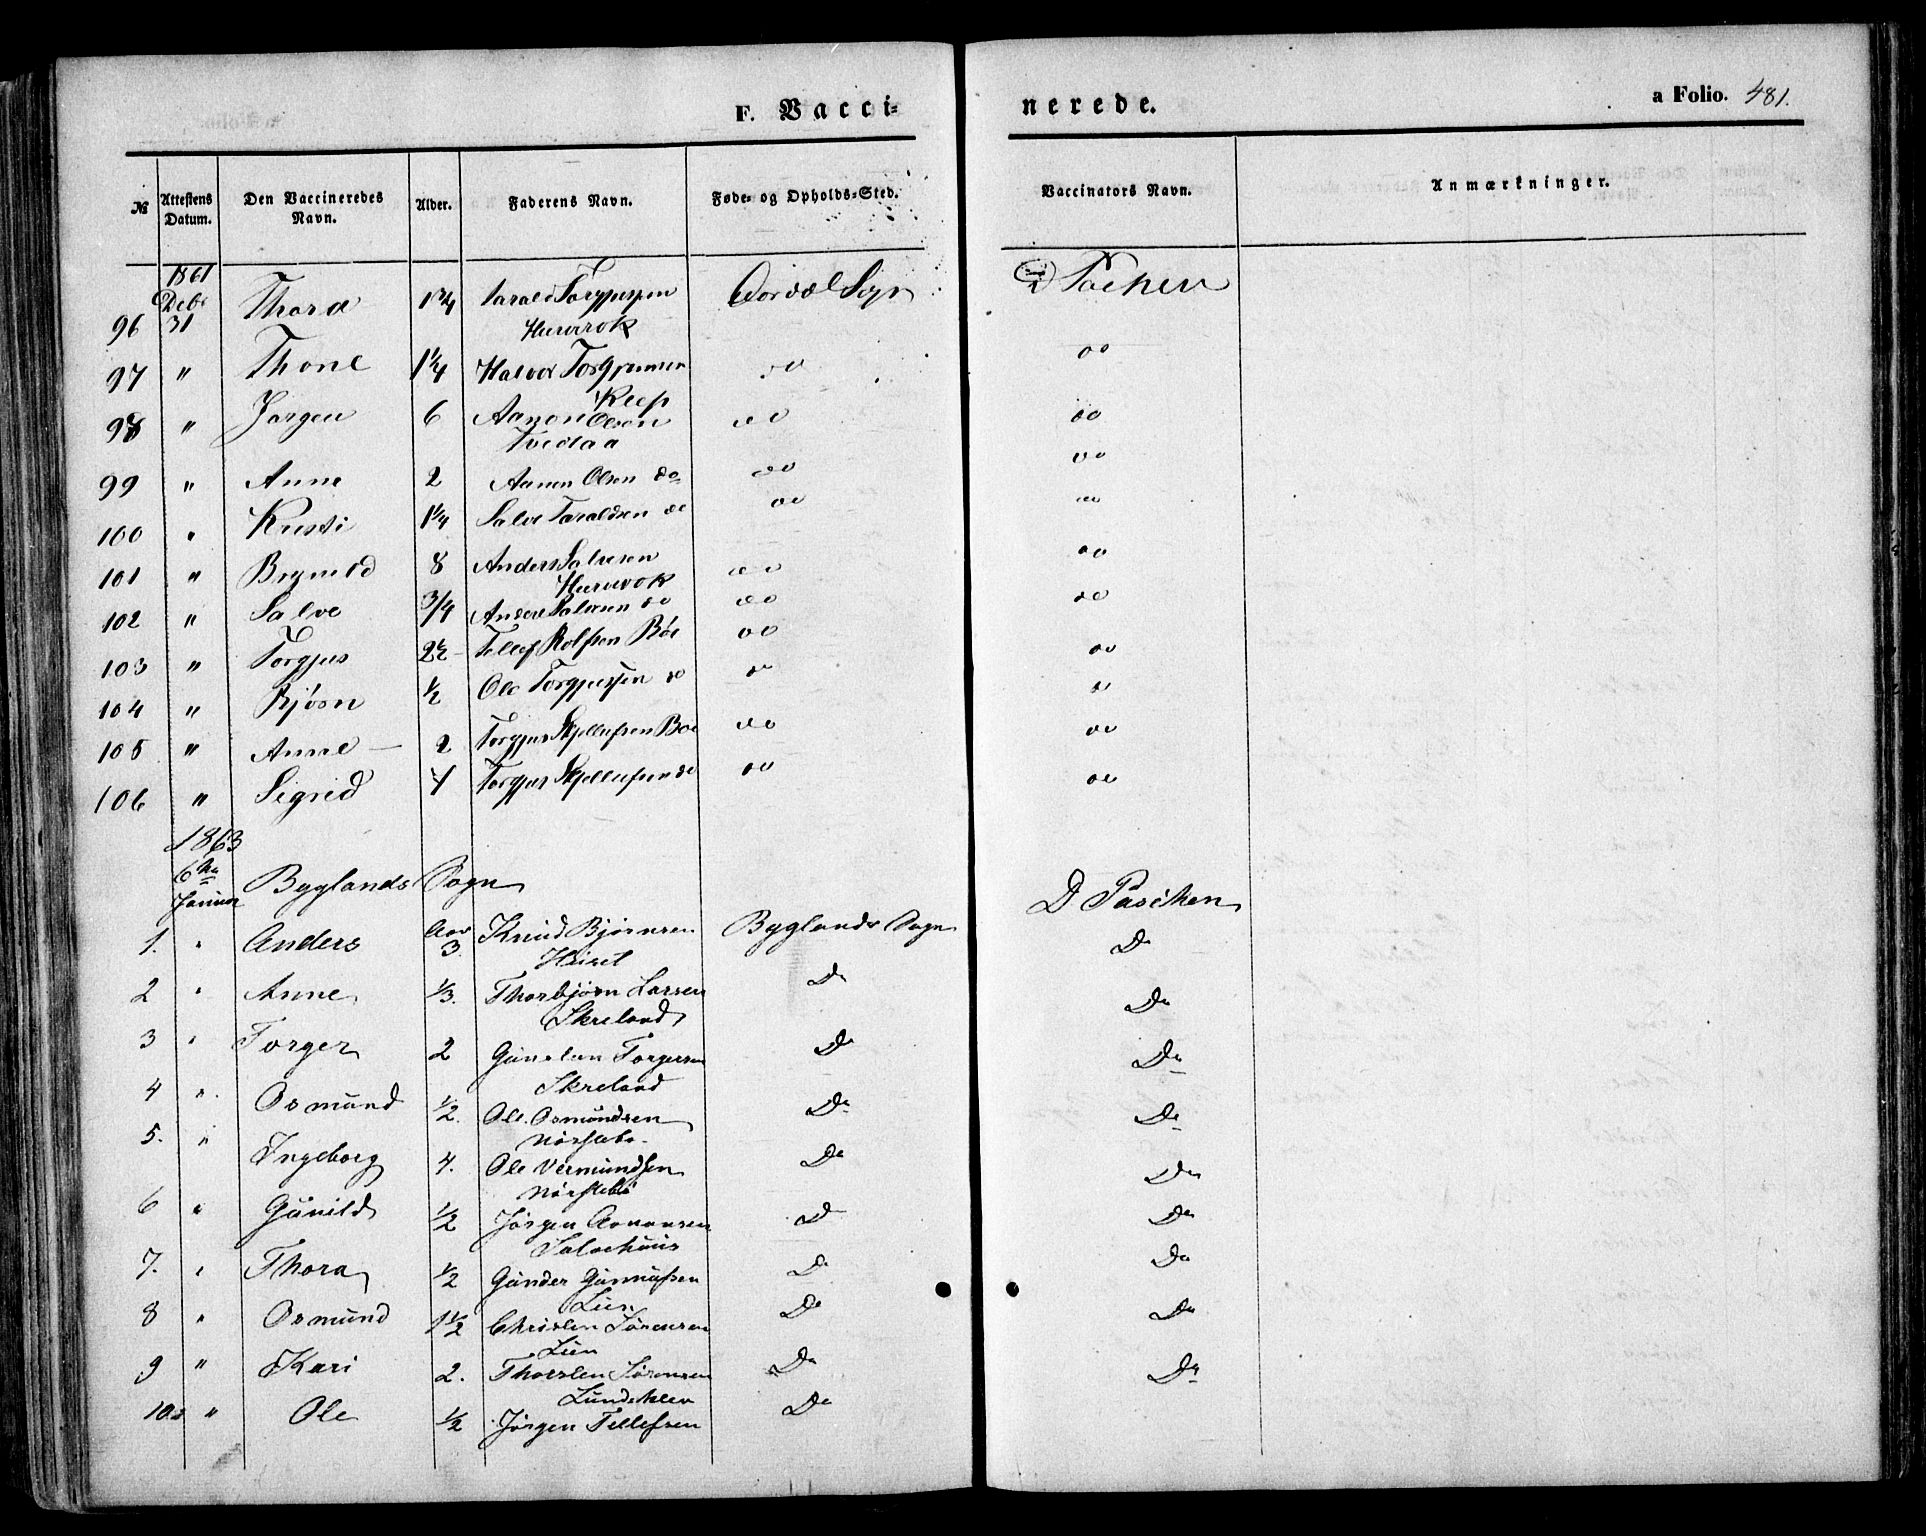 F. Vaccinerede.
a Folio. 481.
№ | Attestens Datum. | Den Vaccineredes Navn. | Alder. | Faderens Navn. | Føde- og Opholds-Sted. | Vaccinators Navn. | Anmærkninger.
1861
96 Debr 31 Thora 1¾ Tarald Torgjussen Sogn
97 " Thone 1¼ Halvor
98 " Jørgen 6 Aanon Olsen
Tveitaa
99 " Anne 2 Aanon Olsen do
100 " Kristi 1¼ Salve Taraldsen do
101 " 8 Anders Salvesen
102 " Salve ¾ Anders Salvesen do do
103 " Torgjus 2½ Tellef Rolfsen Bøe do
104 " Bjørn ½ Ole Torgjussen do
105 " Anne 2 Torgjus Skjellufsen Bøe do
106 " Sigrid 4 Torgjus Skjellufsen do do
1863
6te Januar Byglands Sogn D Paschen
1. " Anders Aar 3. Knud Bjørnsen Byglands Sogn Do
2 " Anne ⅓. Thorbjørn Larsen Do Do
Skreland
3 " Torger 2 Gunsten Torgersen Do Do
Skreland
4 " Osmund ½. Ole Osmundsen Do Do
5. " Ingeborg 4. Ole Vermundsen Do Do
Nørstebø
6 " Gunild ½ Jørgen Aanonsen Do Do
7. " Thora ½ Gunder Gunnufsen Do Do
Lien
8 " Osmund 1½ Christen Sørensen Do Do
Lien
9 " Kari 2. Thorsten Sørensen Do Do
10. " Ole ½ Jørgen Tellefsen Do